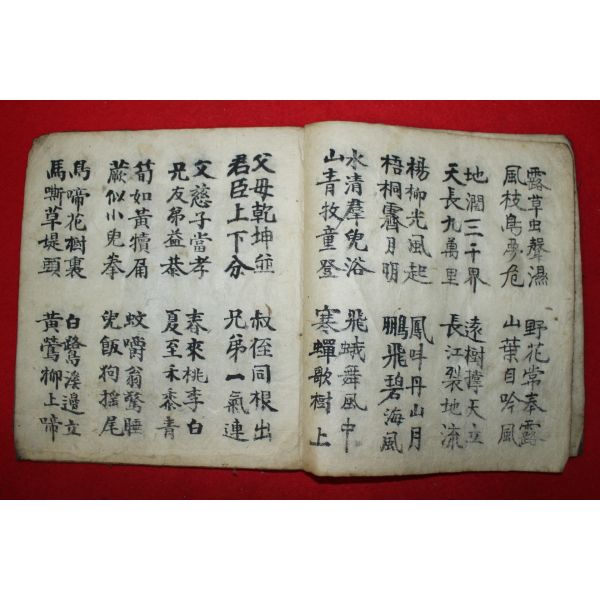 露草虫聲濕
風枝鳥夢危
野花常奉露
山葉自吟風
地濶三千界
天長九萬里
遠樹撑天立
長江裂地流
楊柳光風起
梧桐霽月明
鳳呌丹山月
鵬飛碧海風
水清羣兒浴
山青牧童登
飛蛾舞風中
寒蟬歌樹上
父母乾坤並
君臣上下分
叔侄同根出
兄弟一氣連
父慈子當孝
兄友弟益恭
春來桃李白
夏至禾黍青
筍如黃犢角
蕨似小兒拳
蚊嚼翁驚睡
兒飯狗搖尾
鳥啼花樹裏
馬嘶草堤頭
白鷺溪邊立
黃鶯柳上啼